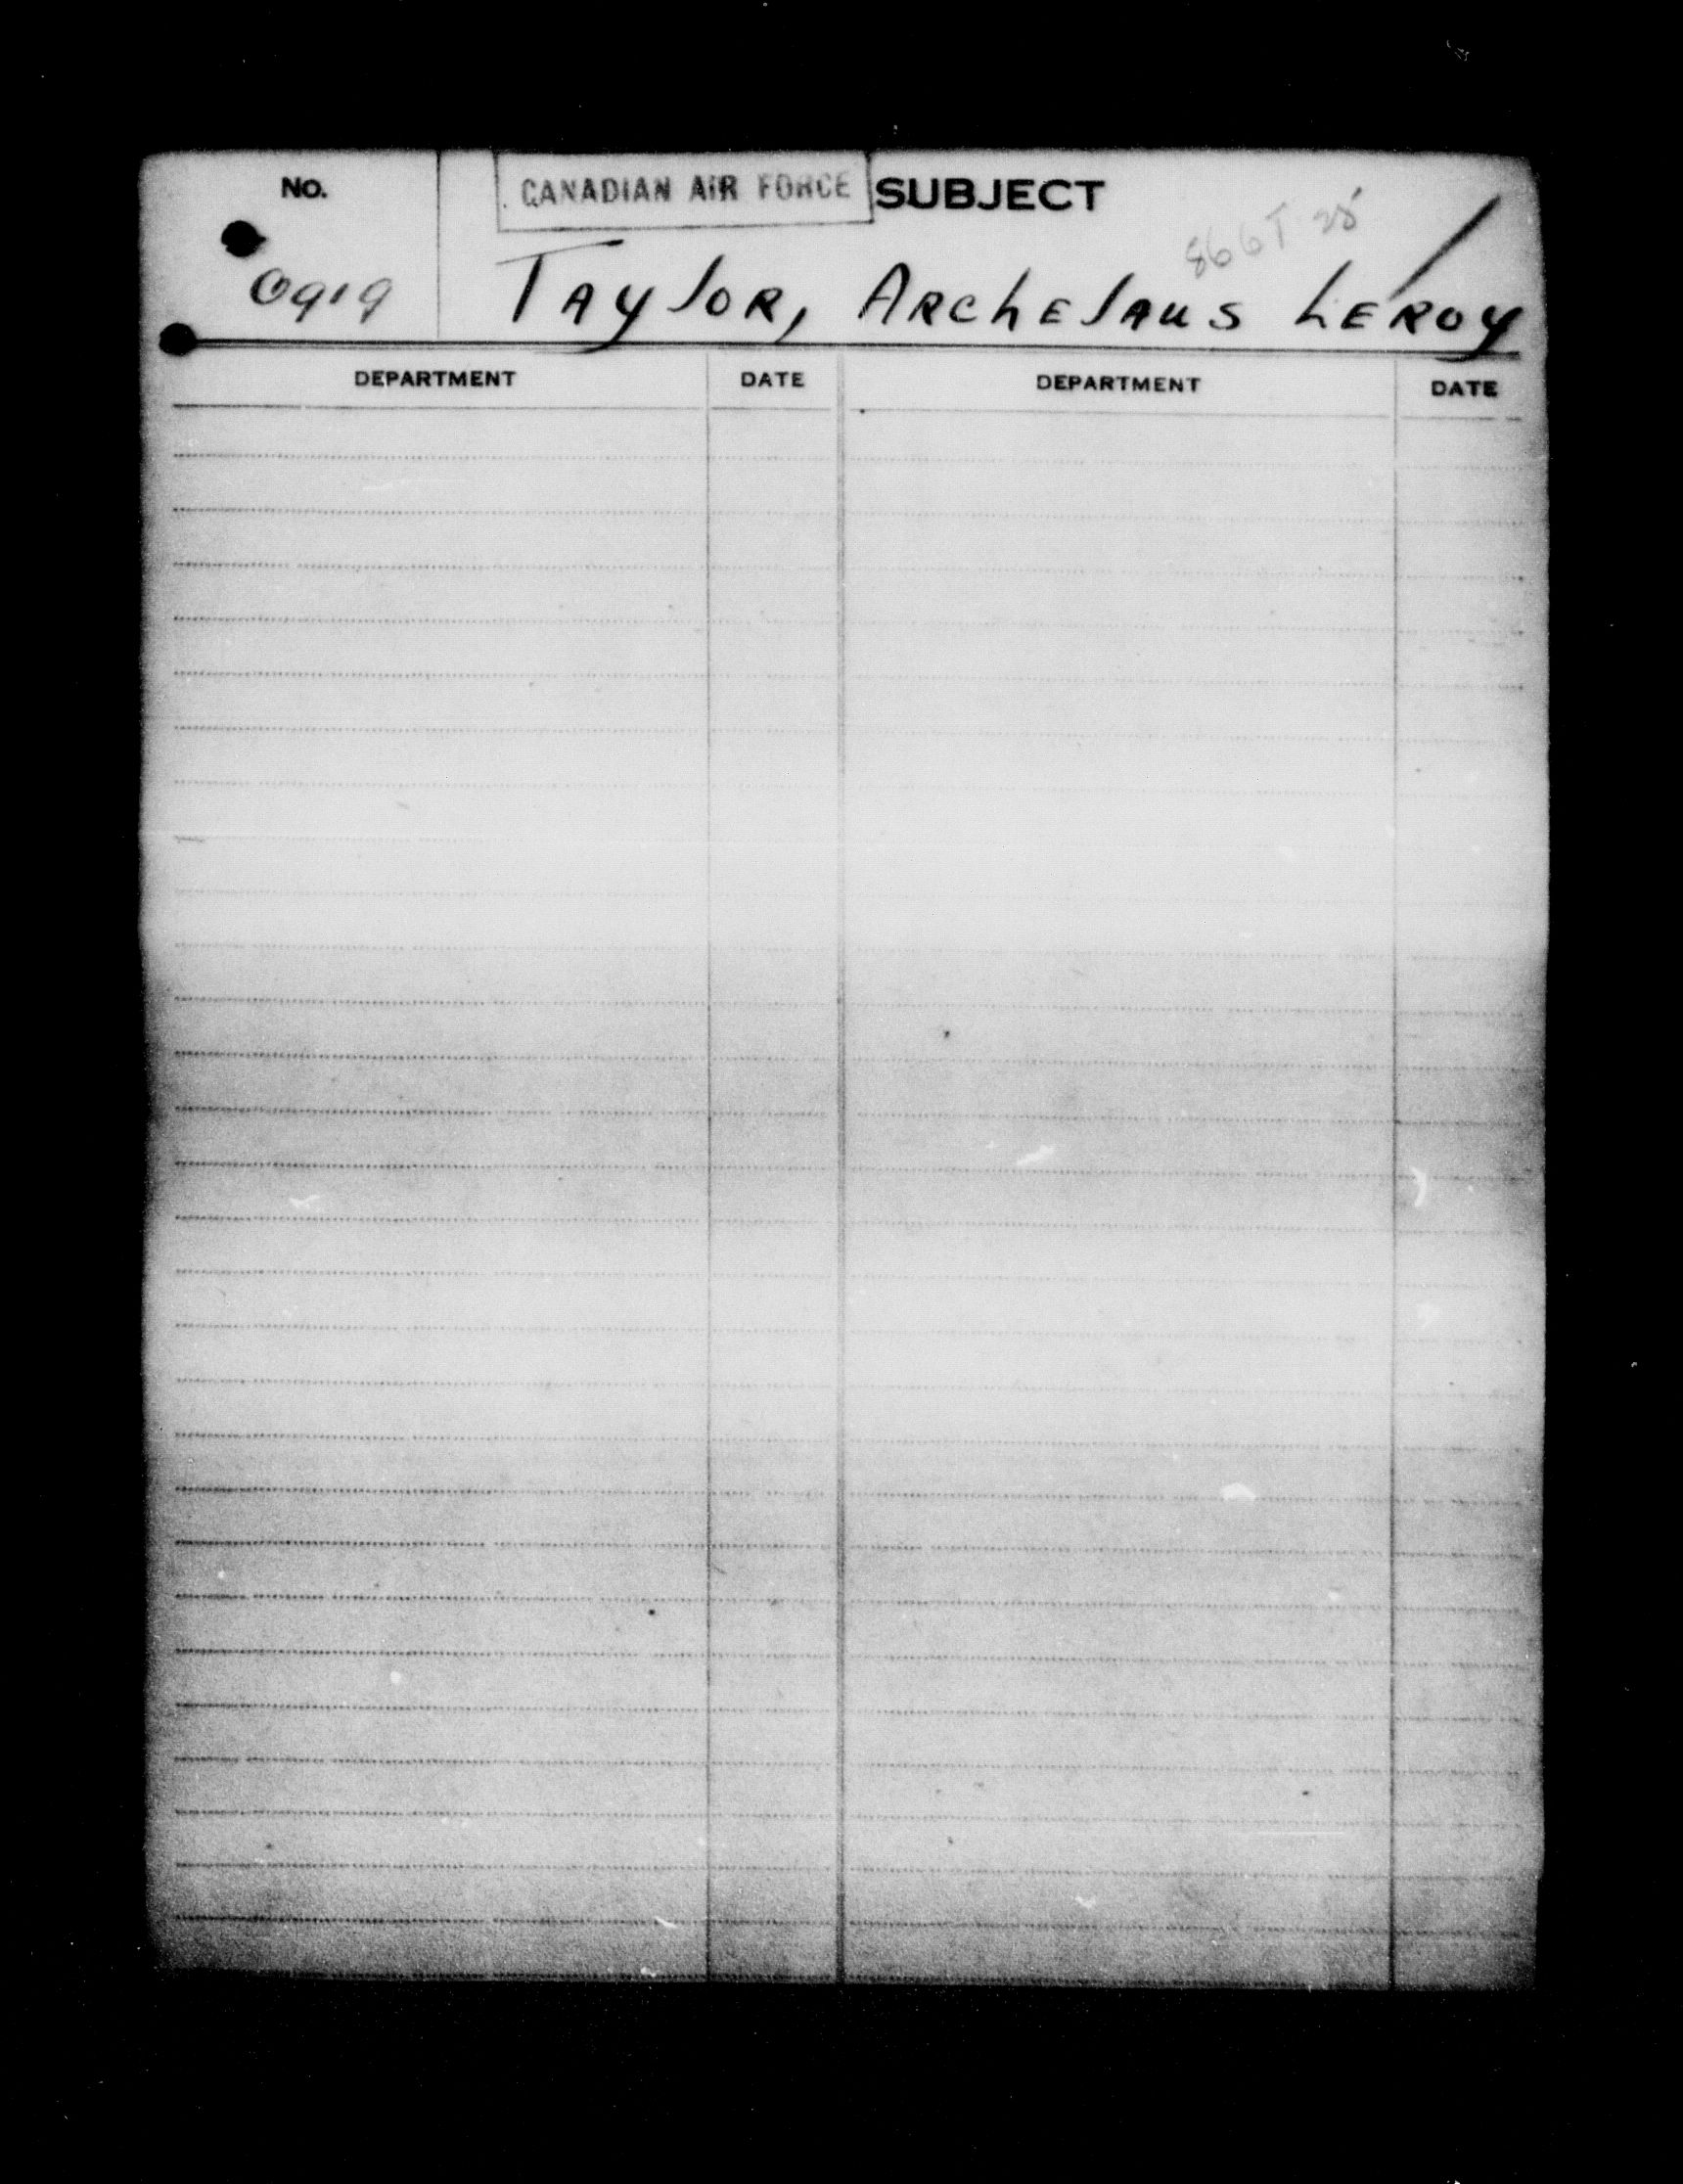 NO. CANADIAN AIR FORCE SUBJECT
866 T 25
0919 TAYLOR, ARCHELAUS LEROY
DEPARTMENT DATE DEPARTMENT DATE